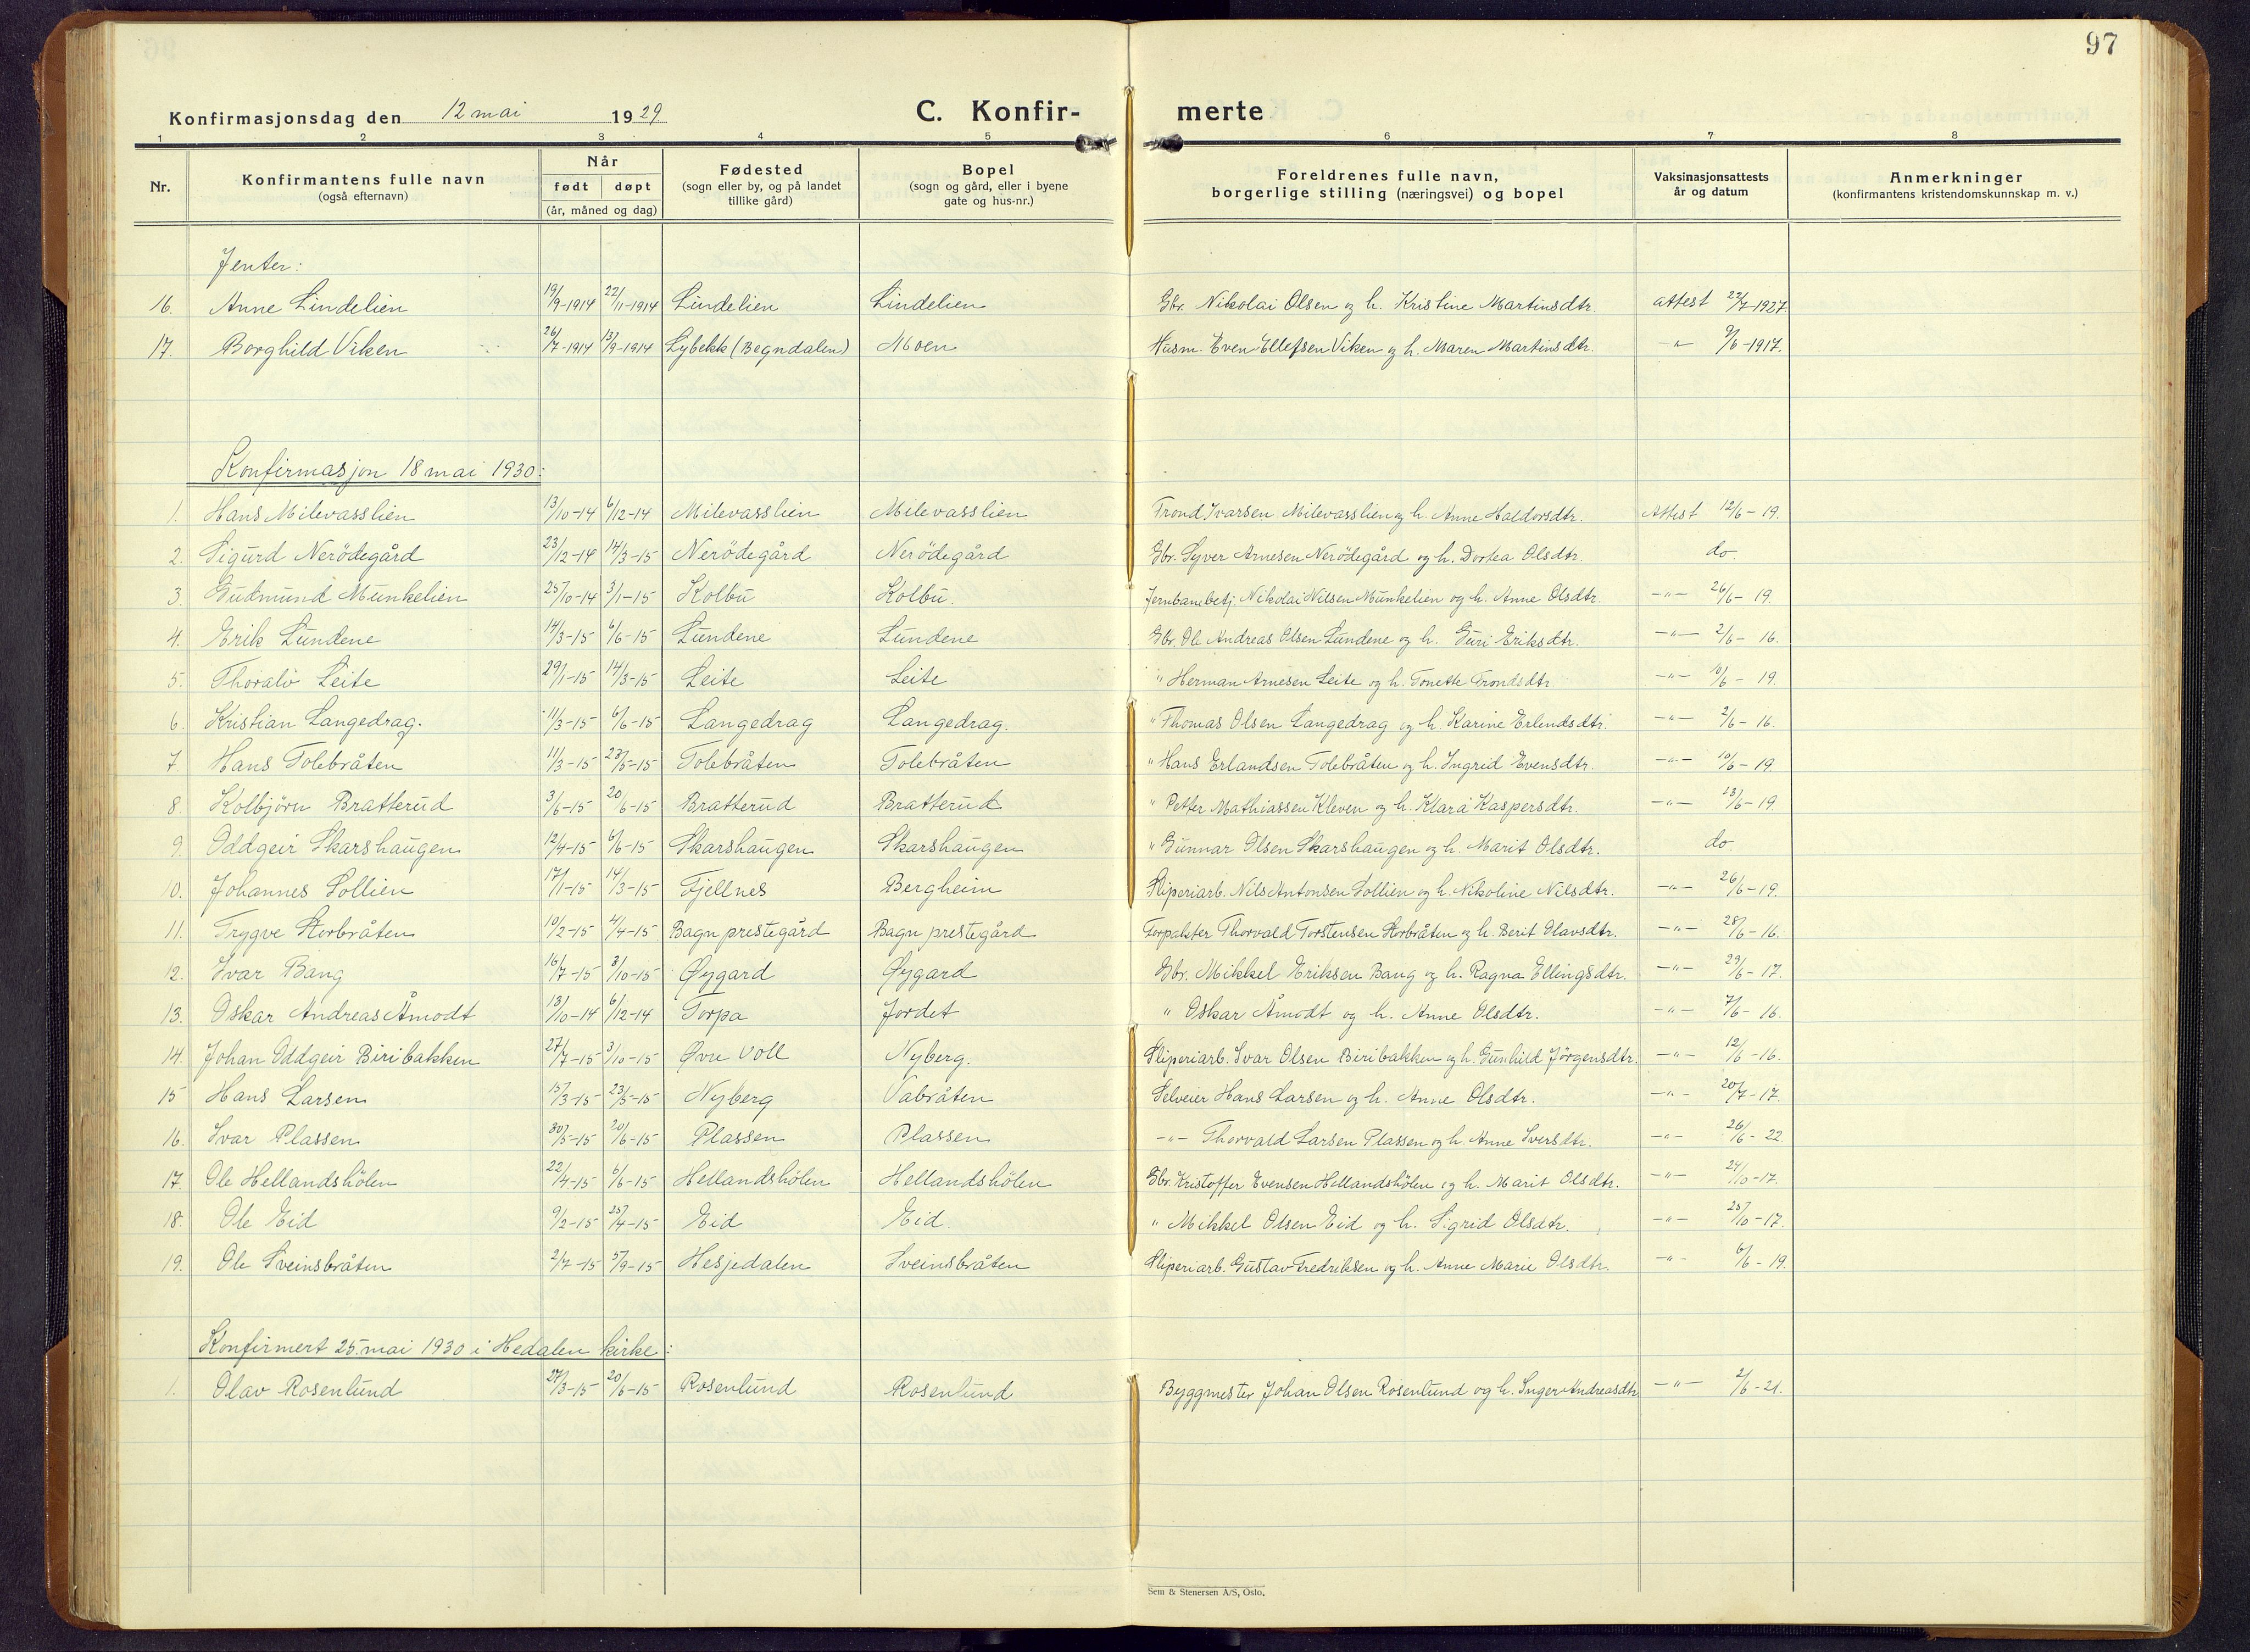 97
Konfirmasjonsdag den 12 mai 1929 C. Konfir- merte
1 2 3 4 5 6 7 8
Nr. Konfirmantens fulle navn (også efternavn) Når født døpt (år, måned og dag) Fødested (sogn eller by, og på landet tillike gård) Bopel (sogn og gård, eller i byene gate og hus-nr.) Foreldrenes fulle navn, borgerlige stilling (næringsvei) og bopel Vaksinasjonsattests år og datum Anmerkninger (konfirmantens kristendomskunnskap m. v.)
Jenter:
16. Anne Lindelien 19/9-1914 22/11-1914 Lindelien Lindelien Gbr. Nikolai Olsen og h. Kristine Martinsdtr. attest 22/7-1927.
17. Borghild Viken 26/7-1914 13/9-1914 Lybekk (Begndalen) Moen Husm. Even Ellefsen Viken og h. Maren Martinsdtr. -"- 9/6-1917.
Konfirmasjon 18 mai 1930:
1. Hans Milevasslien 13/10-14 6/12-14 Milevasslien Milevasslien Trond Ivarsen Milevasslien og h. Anne Haldorsdtr. Attest 12/6-19.
2. Sigurd Nerödegård 23/12-14 14/3-15 Nerödegård Nerödegård Gbr. Syver Arnesen Nerödegård og h. Dortea Olsdtr. do.
3. Gudmund Munkelien 25/10-14 3/1-15 Kolbu Kolbu. Jernbanebetj. Nikolai Nilsen Munkelien og h. Anne Olsdtr. -"- 26/6-19.
4. Erik Lundene 14/3-15 6/6-15 Lundene Lundene Gbr. Ole Andreas Olsen Lundene og h. Guri Eriksdtr. -"- 2/6-16.
5. Thoralv Leite 29/1-15 14/3-15 Leite Leite " Herman Arnesen Leite og h. Tonette Trondsdtr. -"- 10/6-19.
6. Kristian Langedrag. 11/3-15 6/6-15 Langedrag Langedrag. " Thomas Olsen Langedrag og h. Karine Erlendsdtr. -"- 2/6-16.
7. Hans Tolebråten 11/3-15 23/5-15 Tolebråten Tolebråten " Hans Erlandsen Tolebråten og h. Ingrid Evensdtr. -"- 10/6-19.
8. Kolbjörn Bratterud 3/6-15 20/6-15 Bratterud Bratterud " Petter Mathiassen Kleven og h. Klara Kaspersdtr. -"- 13/6-19.
9. Oddgeir Skarshaugen 12/4-15 6/6-15 Skarshaugen Skarshaugen " Gunnar Olsen Skarshaugen og h. Marit Olsdtr. do.
10. Johannes Sollien 17/1-15 14/3-15 Fjellnes Bergheim Sliperiarb. Nils Antonsen Sollien og h. Nikoline Nilsdtr. -"- 26/6-19.
11. Trygve Storbråten 10/2-15 4/4-15 Bagn prestegård Bagn prestegård Forpakter Thorvald Torstensen Storbråten og h. Berit Olavsdtr. -"- 28/6-16.
12. Ivar Bang 16/7-15 3/10-15 Øygard Øygard Gbr. Mikkel Eriksen Bang og h. Ragna Ellingsdtr. -"- 29/6-17.
13. Oskar Andreas Åmodt 13/10-14 6/12-14 Torpa Jordet " Oskar Åmodt og h. Anne Olsdtr. -"- 7/6-16.
14. Johan Oddgeir Biribakken 27/7-15 3/10-15 Øvre Voll Nyberg. Sliperiarb. Ivar Olsen Biribakken og h. Gunhild Jörgensdtr. -"- 12/6-16.
15 Hans Larsen 15/3-15 23/5-15 Nyberg Vabråten Selveier Hans Larsen og h. Anne Olsdtr. -"- 20/7-17.
16. Ivar Plassen 30/5-15 20/6-15 Plassen Plassen -"- Thorvald Larsen Plassen og h. Anne Iversdtr. -"- 26/6-22.
17. Ole Hellandshölen 22/4-15 6/6-15 Hellandshölen Hellandshölen Gbr. Kristoffer Evensen Hellandshölen og h. Marit Olsdtr. -"- 24/10-17.
18. Ole Eid 9/2-15 25/4-15 Eid Eid. " Mikkel Olsen Eid og h. Sigrid Olsdtr. -"- 25/10-17.
19. Ole Sveinsbråten 2/7-15 5/9-15 Hesjedalen Sveinsbråten Sliperiarb. Gustav Fredriksen og h. Anne Marie Olsdtr. -"- 6/6-19.
Konfirmert 25. mai 1930 i Hedalen kirke:
1. Olav Rosenlund 27/3-15 20/6-15 Rosenlund Rosenlund Byggmester Johan Olsen Rosenlund og h. Inger Andreasdtr. -"- 2/6-21.
Sem & Stenersen A/S, Oslo.